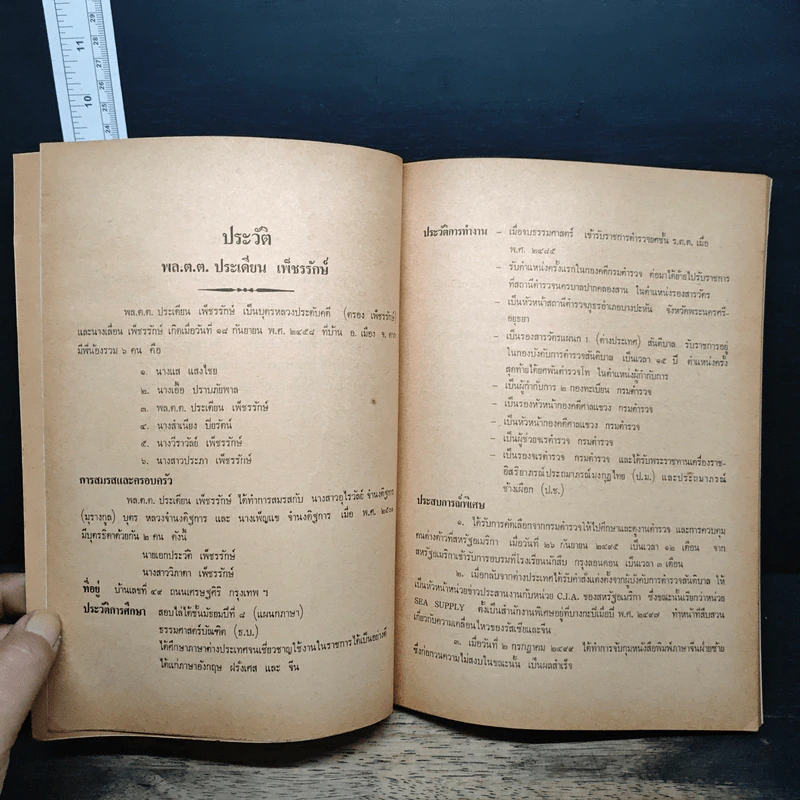 ประวัติ
พล.ต.ต. ประเดียน เพ็ชรรักษ์
พล.ต.ต. ประเดียน เพ็ชรรักษ์ เป็นบุตรหลวงประดับคดี (ตรอง เพ็ชรรักษ์)
และนางเลื่อน เพ็ชรรักษ์ เกิดเมื่อวันที่ ๑๘ กันยายน พ.ศ. ๒๔๕๘ ที่บ้าน อ. เมือง จ.
มีพี่น้องรวม ๖ คน คือ
๑. นางแส แสงไชย
๒. นางเอื้อ ปราบภัยพาล
๓. พล.ต.ต. ประเดียน เพ็ชรรักษ์
๔. นางสำเนียง ปิยรัตน์
๕. นางวีราวัลย์ เพ็ชรรักษ์
๖. นางสาวประภา เพ็ชรรักษ์
การสมรสและครอบครัว
พล.ต.ต. ประเดียน เพ็ชรรักษ์ ได้ทำการสมรสกับ นางสาวอุไรวัลย์ จำนงดิฐการ
(มุรางกูล) บุตร หลวงจำนงดิฐการ และ นางเพ็ญแข จำนงดิฐการ เมื่อ พ.ศ.
มีบุตรธิดาด้วยกัน ๒ คน ดังนี้
นายเอกประวัติ เพ็ชรรักษ์
นางสาววิภาดา เพ็ชรรักษ์
ที่อยู่ บ้านเลขที่ ๔๙ ถนนเศรษฐศิริ กรุงเทพ ฯ
ประวัติการศึกษา สอบไล่ได้ชั้นมัธยมปีที่ ๘ (แผนกภาษา)
ธรรมศาสตร์บัณฑิต (ธ.บ.)
ได้ศึกษาภาษาต่างประเทศจนเชี่ยวชาญใช้งานในราชการได้เป็นอย่างดี
ได้แก่ภาษาอังกฤษ ฝรั่งเศส และ จีน
ประวัติการทำงาน – เมื่อจบธรรมศาสตร์ เข้ารับราชการตำรวจยศชั้น ร.ต.ต. เมื่อ
พ.ศ. ๒๔๘๕
– รับตำแหน่งครั้งแรกในกองคดีกรมตำรวจ ต่อมาได้ย้ายไปรับราชการ
ที่สถานีตำรวจนครบาลปากคลองสาน ในตำแหน่งรองสารวัตร
– เป็นหัวหน้าสถานีตำรวจภูธรอำเภอบางปะหัน จังหวัดพระนครศรี-
อยุธยา
– เป็นรองสารวัตรแผนก ๑ (ต่างประเทศ) สันติบาล รับราชการอยู่
ในกองบังคับการตำรวจสันติบาล เป็นเวลา ๑๕ ปี ตำแหน่งครั้ง
สุดท้ายได้ยศพันตำรวจโท ในตำแหน่งผู้กำกับการ
– เป็นผู้กำกับการ ๒ กองทะเบียน กรมตำรวจ
– เป็นรองหัวหน้ากองคดีศาลแขวง กรมตำรวจ
– เป็นหัวหน้ากองคดีศาลแขวง กรมตำรวจ
– เป็นผู้ช่วยจเรตำรวจ กรมตำรวจ
– เป็นรองจเรตำรวจ กรมตำรวจ และได้รับพระราชทานเครื่องราช-
อิสริยาภรณ์ประถมาภรณ์มงกุฎไทย (ป.ม.) และประถมาภรณ์
ช้างเผือก (ป.ช.)
ประสบการณ์พิเศษ
๑. ได้รับการคัดเลือกจากกรมตำรวจให้ไปศึกษาและดูงานตำรวจ และการควบคุม
คนต่างด้าวที่สหรัฐอเมริกา เมื่อวันที่ ๒๖ กันยายน ๒๔๙๕ เป็นเวลา ๑๒ เดือน จาก
สหรัฐอเมริกาเข้ารับการอบรมที่โรงเรียนนักสืบ กรุงลอนดอน เป็นเวลา ๓ เดือน
๒. เมื่อกลับจากต่างประเทศได้รับคำสั่งแต่งตั้งจากผู้บังคับการตำรวจสันติบาล ให้
เป็นหัวหน้าหน่วยข่าวประสานงานกับหน่วย C.I.A. ของสหรัฐอเมริกา ซึ่งขณะนั้นเรียกว่าหน่วย
SEA SUPPLY ตั้งเป็นสำนักงานพิเศษอยู่ตึกบางกะปิเมื่อปี พ.ศ. ๒๔๙๗ ทำหน้าที่สืบสวน
เกี่ยวกับความเคลื่อนไหวของรัสเซียและจีน
๓. เมื่อวันที่ ๒ กรกฎาคม ๒๔๙๙ ได้ทำการจับกุมหนังสือพิมพ์ภาษาจีนฝ่ายซ้าย
ซึ่งก่อกวนความไม่สงบในขณะนั้น เป็นผลสำเร็จ
29
28
11
27
26
10
25
24